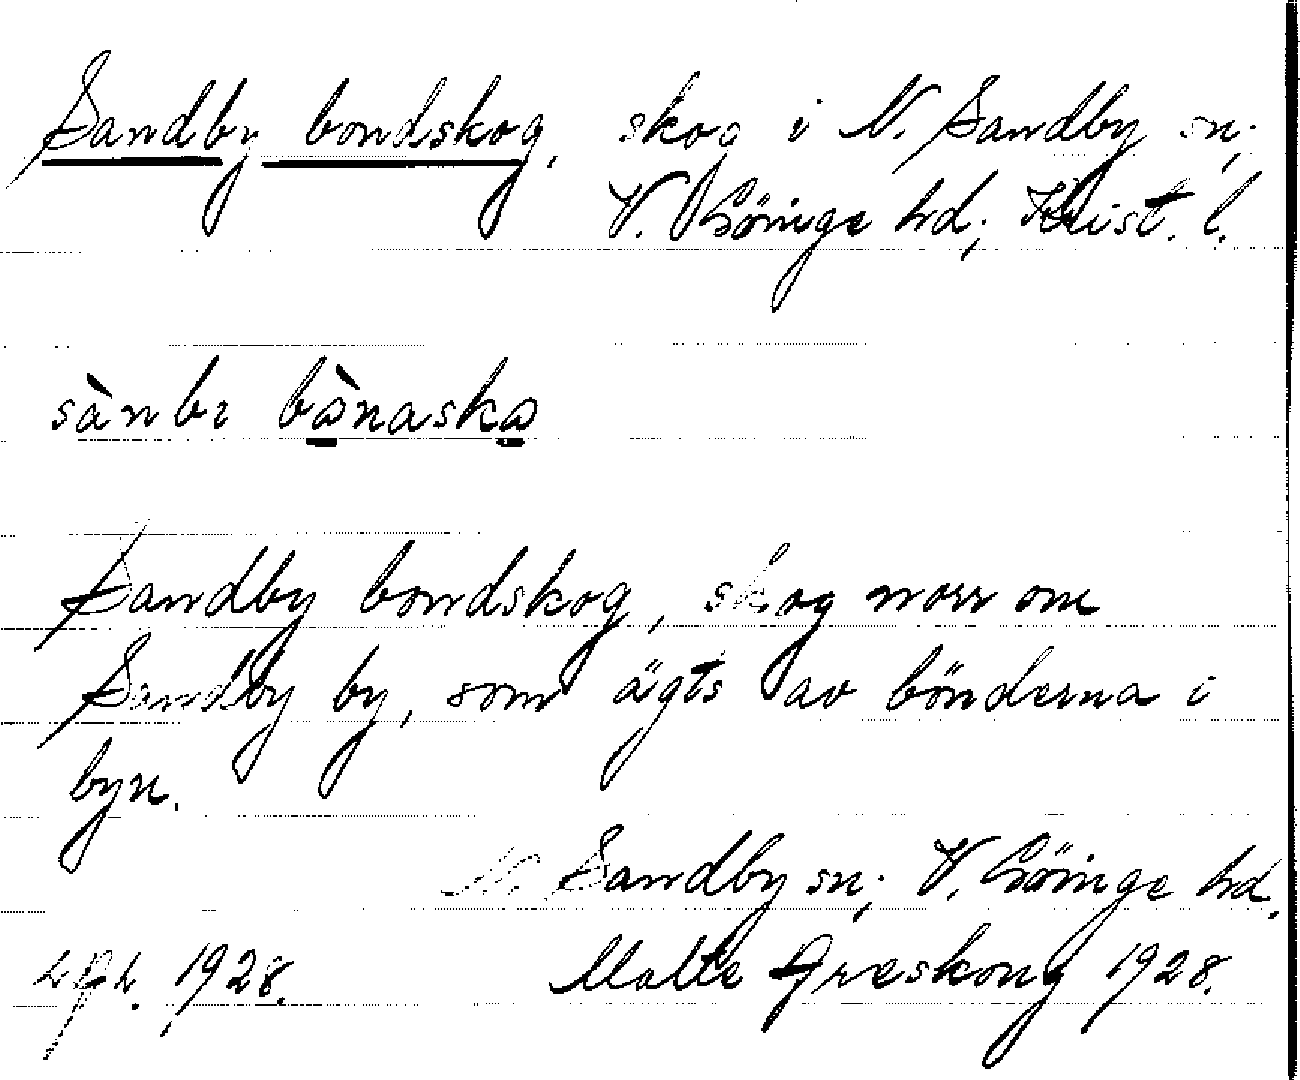 Sandby bondskog, skog i N. Sandby sn;
V. Göinge hd; Krist. l.
sànbi bònasko
Sandby bondskog, skog norr om
Sandby by, som ägts av bönderna i
byn.
N. Sandby sn; V. Göinge hd,
1928. Malte Areskoug 1928.